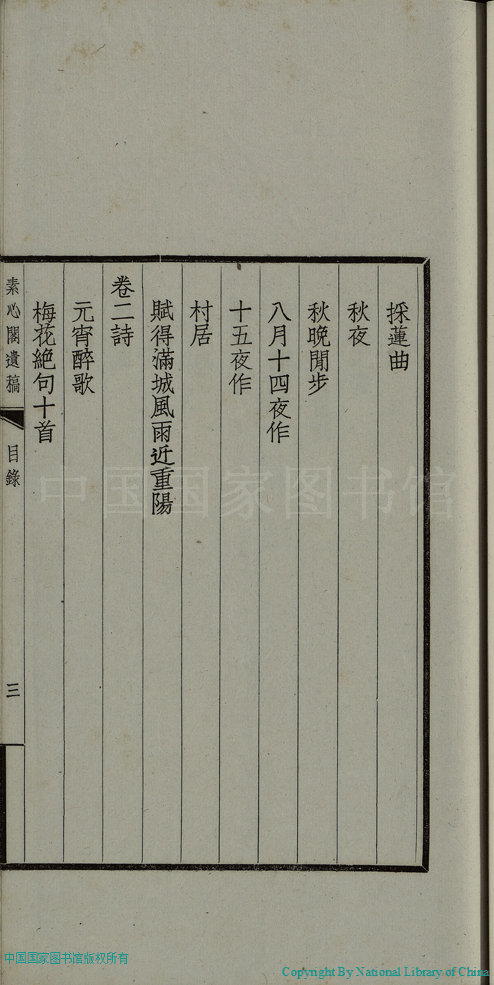 採蓮曲
秋夜
秋晚閒步
八月十四夜作
十五夜作
村居
賦得滿城風雨近重陽
卷二詩
元宵醉歌
梅花絕句十首
素心閣遺稿
目錄
三
中国国家图书馆
中国国家图书馆版权所有
Copyright By National Library of China